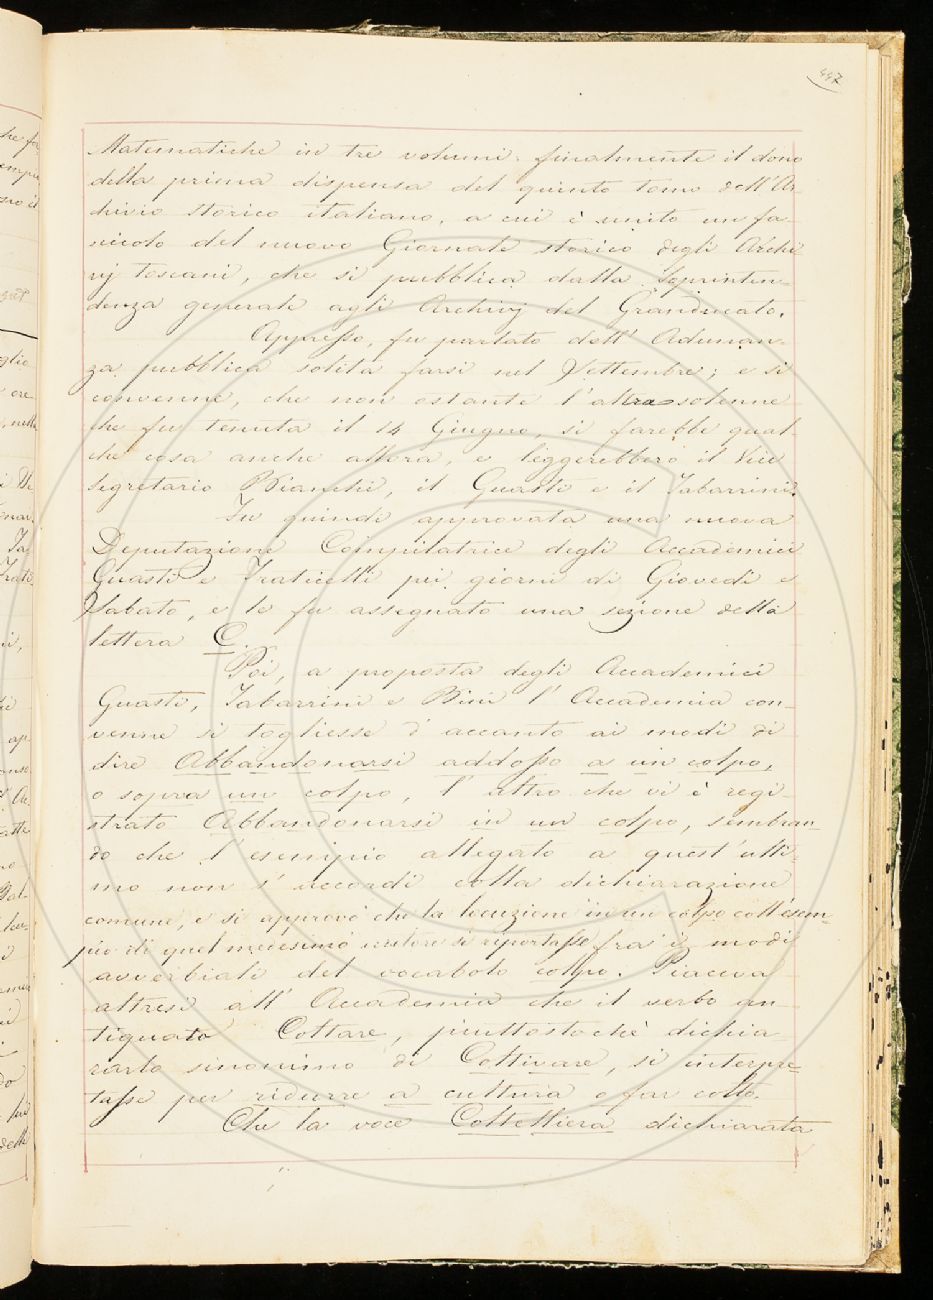 447
Matematiche in tre volumi: finalmente il dono
della prima dispensa del quinto tomo dell'Ar-
chivio storico italiano, a cui è unito un fa-
scicolo del nuovo Giornale storico degli Archi-
vj toscani, che si pubblica dalla Soprinten-
denza generale agli Archivj del Granducato.
Appresso, fu parlato dell'Adunan-
za pubblica solita farsi nel Settembre; e si
convenne, che non ostante l'altra solenne
che fu tenuta il 14 Giugno, si farebbe qual-
che cosa anche allora, e leggerebbero il Vice
segretario Bianchi, il Guasti e il Tabarrini.
Fu quindi approvata una nuova
Deputazione Compilatrice degli Accademici
Guasti e Fraticelli pei giorni di Giovedì e
Sabato, e le fu assegnato una sezione della
lettera C.
Poi, a proposta degli Accademici
Guasti, Tabarrini e Bini l'Accademia con-
venne si togliesse d'accanto ai modi di
dire Abbandonarsi addosso a un colpo,
o sopra un colpo, l'altro che vi è regi-
strato Abbandonarsi in un colpo, sembran-
do che l'esempio allegato a quest'ulti-
mo non s'accordi colla dichiarazione
comune, e si approvò che la locuzione in un colpo coll'esem-
pio di quel medesimo scrittore si riportasse fra i modi
avverbiali del vocabolo colpo. Piaceva
altresì all'Accademia che il verbo an-
tiquato Coltare, piuttostochè dichia-
rarlo sinonimo di Coltivare, si interpre-
tasse per ridurre a cultura o far colto.
Che la voce Coltelliera dichiarata